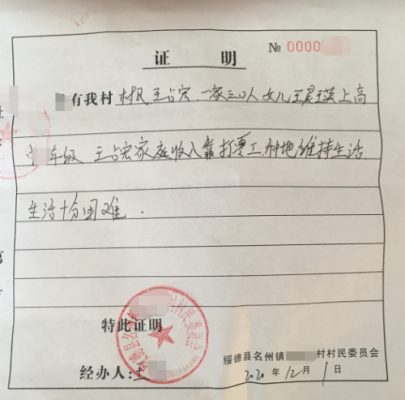 证 明
№ 0000
有我村村民王占宏.一家三口人女儿王昱瑛上高
年级 王占宏家庭收入靠打零工种地维持生活
生活十分困难.
特此证明
经办人:
绥德县名州镇 村村民委员会
2020年12月1日